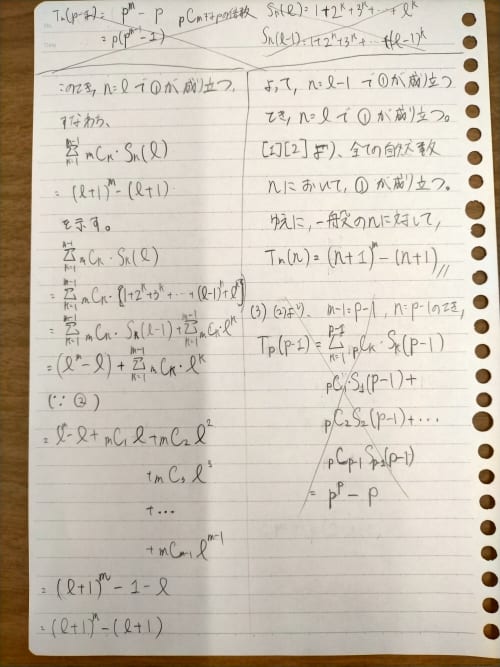 Tm(p-1) = p^m - p  pCmはpの倍数
= p(p^{m-1} - 1)
Sk(l) = 1+2^k+3^k+…+l^k
Sk(l-1) = 1+2^k+3^k+…+(l-1)^k
このとき, n=l で①が成り立つ,
すなわち、
Σ_{k=1}^{m-1} mCk・Sk(l)
= (l+1)^m - (l+1)
を示す。
Σ_{k=1}^{m-1} mCk・Sk(l)
= Σ_{k=1}^{m-1} mCk・[1+2^k+3^k+…+(l-1)^k+l^k]
= Σ_{k=1}^{m-1} mCk・Sk(l-1)+Σ_{k=1}^{m-1} mCk・l^k
= (l^m - l) + Σ_{k=1}^{m-1} mCk・l^k
(∵ ②)
= l^m - l + mC1 l + mC2 l^2
+ mC3 l^3
+ …
+ mCm-1 l^{m-1}
= (l+1)^m - 1 - l
= (l+1)^m - (l+1)
よって, n=l-1 で①が成り立つ
とき, n=l で①が成り立つ。
[1][2]より、全ての自然数
nにおいて, ①が成り立つ。
ゆえに, 一般のnに対して,
Tm(n) = (n+1)^m - (n+1)//
(3) (2)より、 m-1=p-1, n=p-1のとき,
Tp(p-1) = Σ_{k=1}^{p-1} pCk・Sk(p-1)
pC1・S1(p-1)+
pC2 S2(p-1)+…
pCp-1 Sp-1(p-1)
= p^p - p